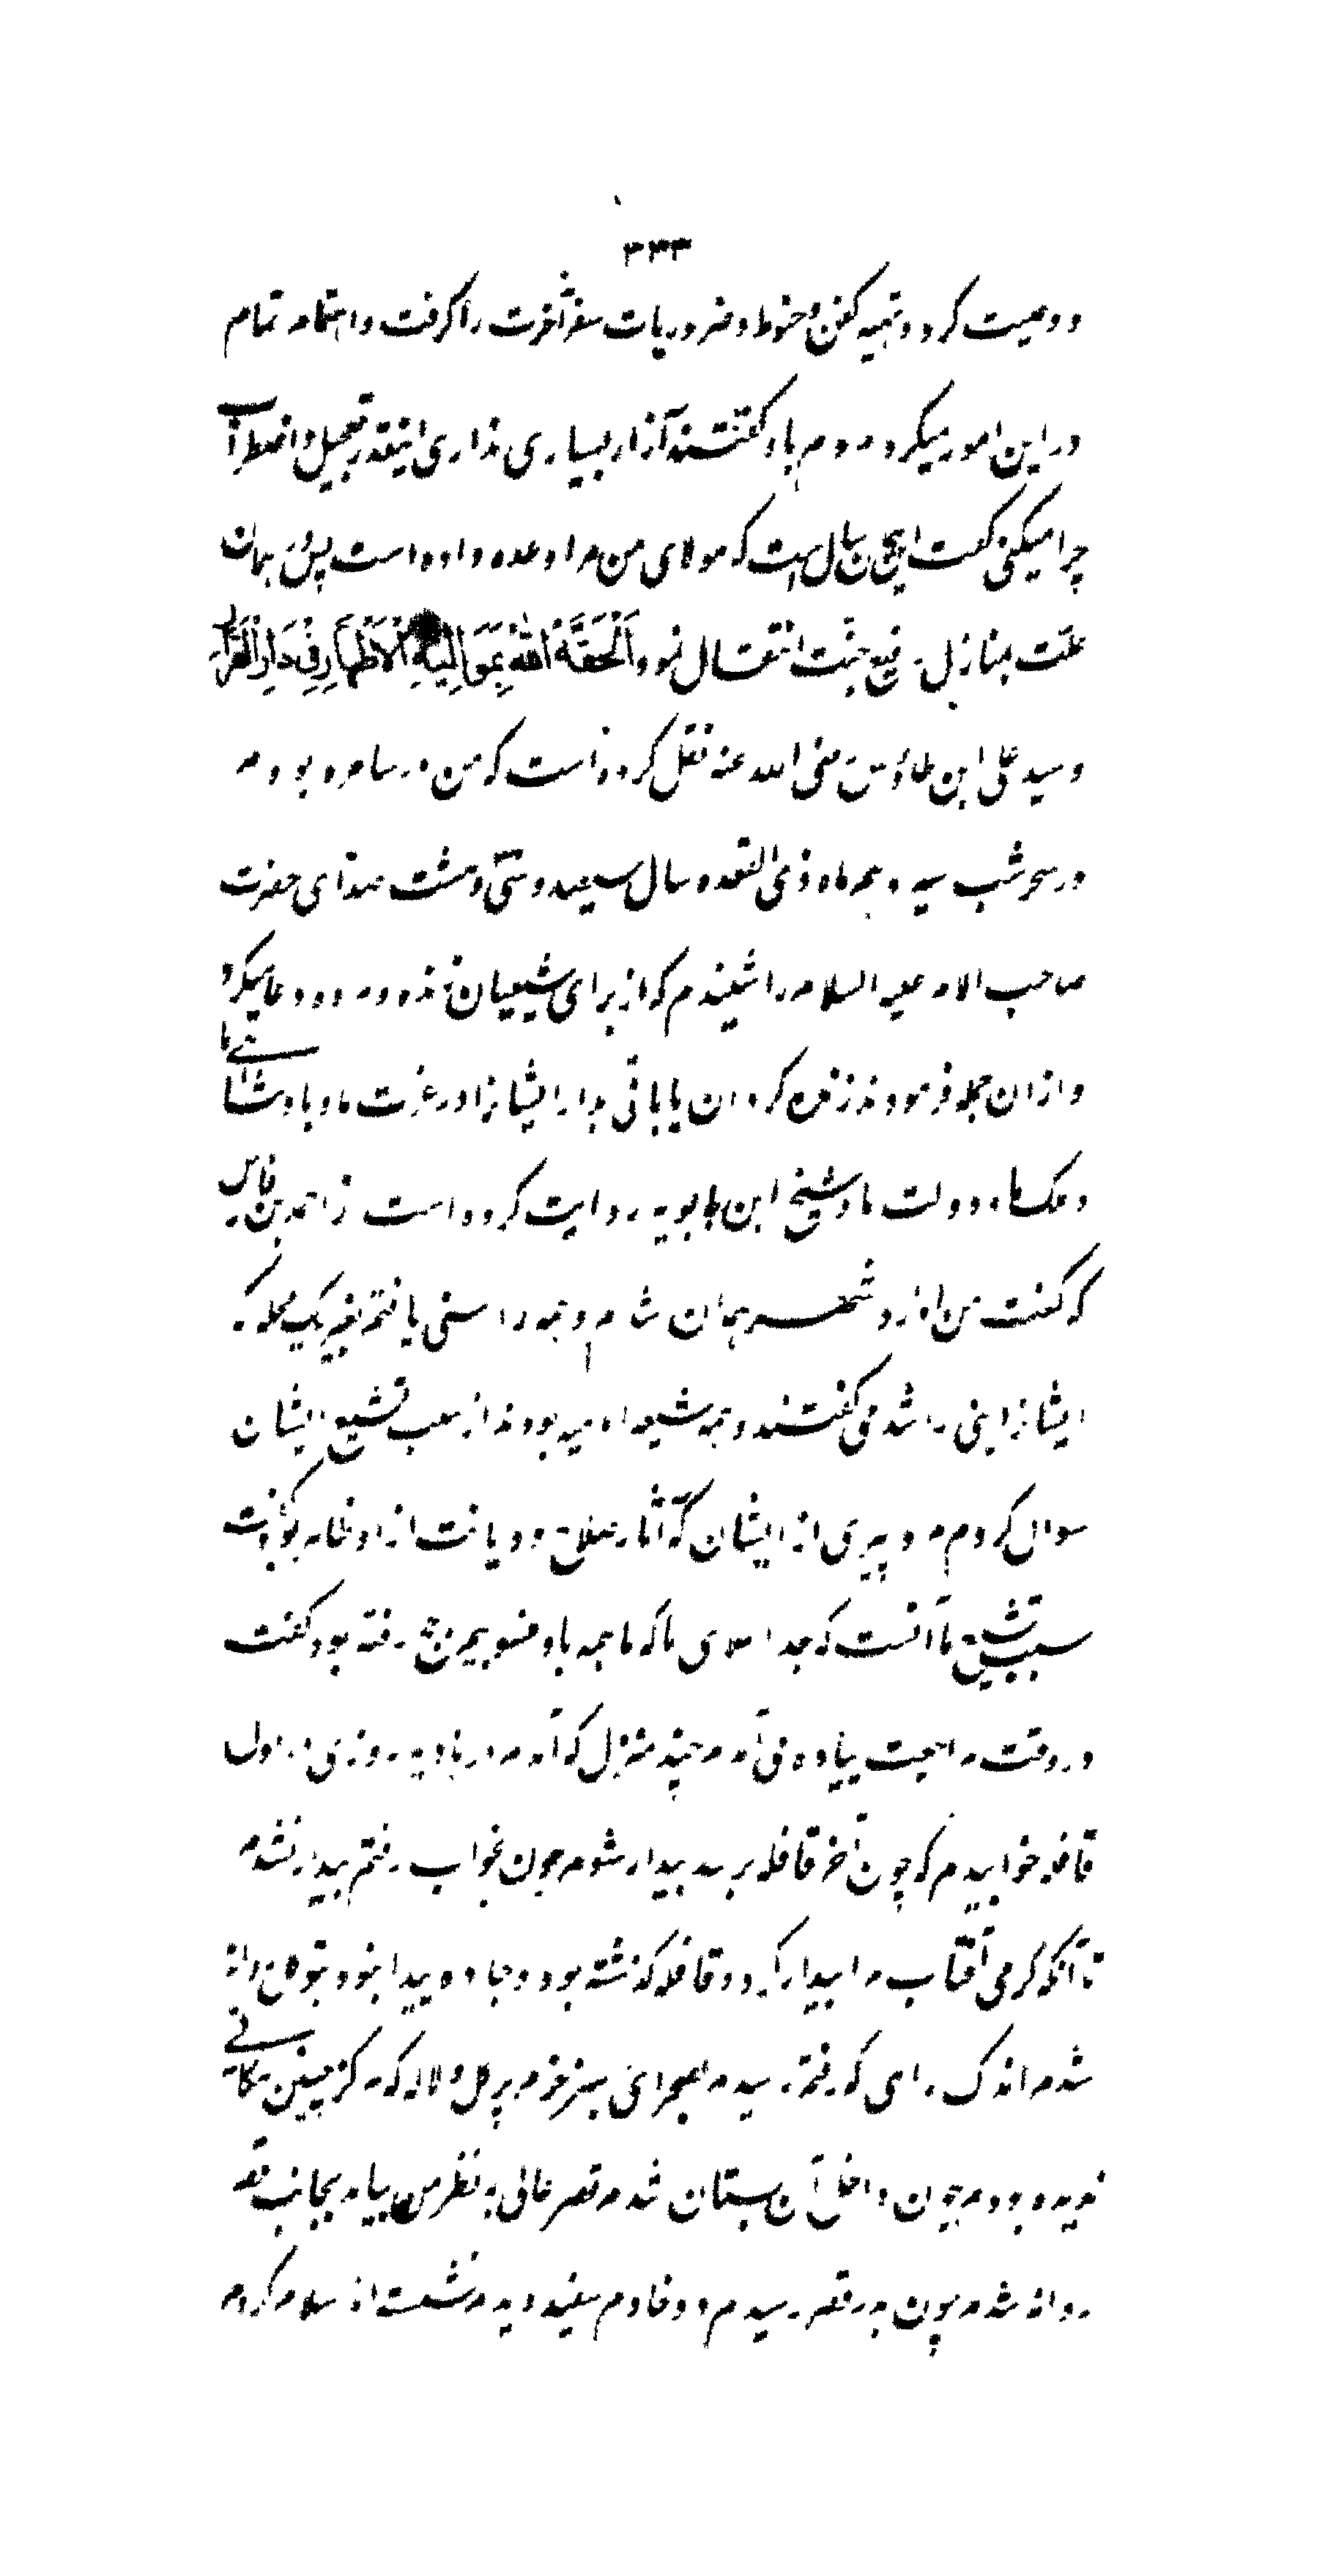 ۳۳۳
و وصیت کرد و تهیه کفن و حنوط و ضروریات سفر آخرت را گرفت و اهتمام تمام
در این امور میکرد مردم باو گفتند آزار بسیاری نداری اینقدر تعجیل و اضطراب
چرا میکنی گفت این همان سال است که مولای من مرا وعده داده است پس در همان
علت بمنازل رفیع جنت انتقال نمود اَلْحَقَهُ اللهُ بِمَوَالِیهِ الْاَطْهَارِ فِی دَارِ الْقَرَارِ
و سید علی ابن طاؤس رضی الله عنه نقل کرده است که من در سامره بودم
در سحر شب سیزدهم ماه ذی القعده سال سیصد و سی و هشت صدای حضرت
صاحب الامر علیه السلام را شنیدم که از برای شیعیان زنده و مرده دعا میکرد
و از ان جمله فرمودند زنده گردان یا باقی بدار ایشانرا در عزت ما و پادشاهی ما
و ملک ما و دولت ما و شیخ ابن بابویه روایت کرده است از احمد بن فارس
که گفت من وارد شهر همدان شدم و همه را سنی یافتم بغیر یک محله که
ایشانرا بنی راشد می گفتند و همه شیعه امامیه بودند از سبب تشیع ایشان
سوال کردم مرد پیری از ایشان که آثار صلاح و دیانت از او ظاهر بود گفت
سبب تشیع ما آنست که جد اعلای ما که ما همه باو منسوبیم بحج رفته بود گفت
در وقت مراجعت پیاده می آمدم چند منزل که آمدم در بادیه روزی در اول
قافله خوابیدم که چون آخر قافله برسد بیدار شوم چون بخواب رفتم بیدار نشدم
تا آنکه گرمی آفتاب مرا بیدار کرد و قافله گذشته بود و جاده پیدا نبود بتوکل روانه
شدم اندک راهی که رفتم رسیدم بصحرای سبز خرم پر گل و لاله که هرگز چنین مکانی
ندیده بودم چون داخل آن بستان شدم قصر عالی به نظر من بیامد بجانب قصر
روانه شدم چون بدر قصر رسیدم دو خادم سفید دیدم نشسته اند سلام کردم